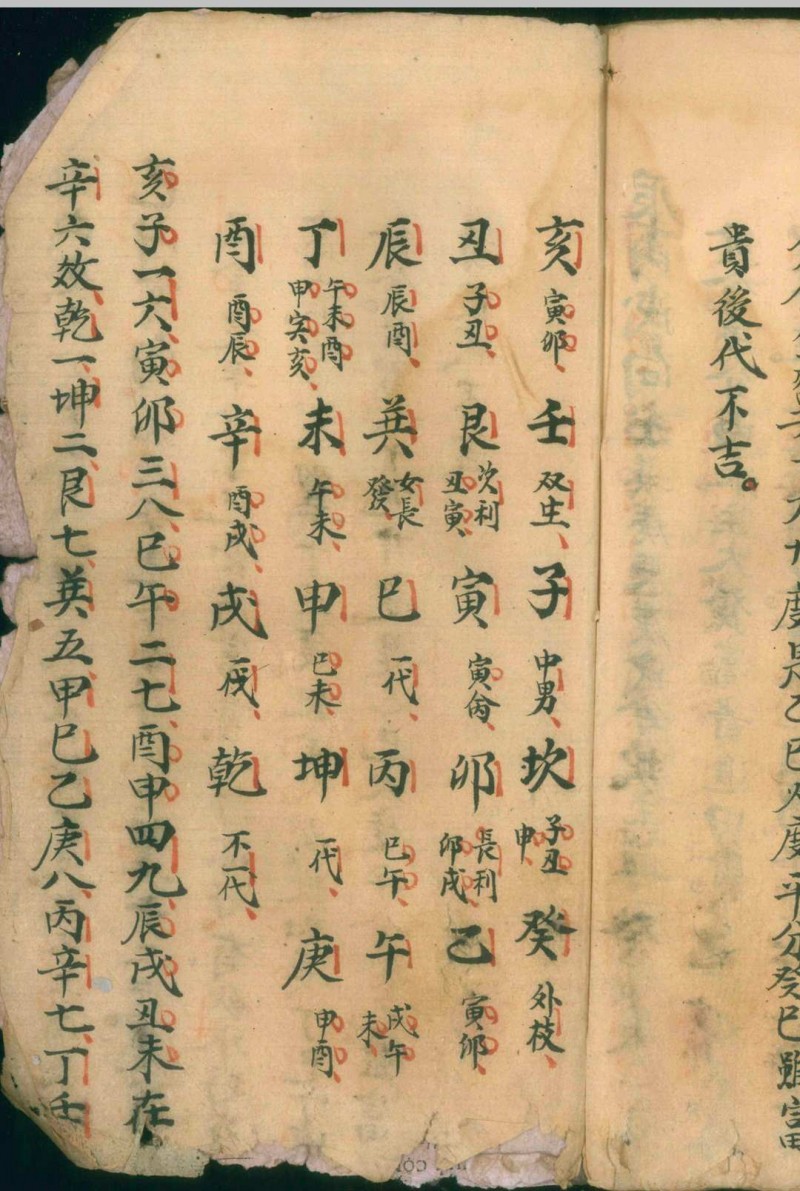 平分癸巳雖富
貴後代不吉。
亥 寅卯 壬 双生 子 中男 坎 子丑申 癸 外枝
丑 子丑 艮 次利丑寅 寅 寅 卯 長利卯戌 乙 寅卯
辰 辰酉 巽 女長發 巳 一代 丙 巳午 午 戌午未
丁 午未酉甲寅亥 未 午未 申 巳未 坤 一代 庚 申酉
酉 酉辰 辛 酉戌 戌 一代 乾 不一代
亥子一六寅卯三八巳午二七酉申四九辰戌丑未在
辛六效乾一坤二艮七巽五甲巳乙庚八丙辛七丁壬